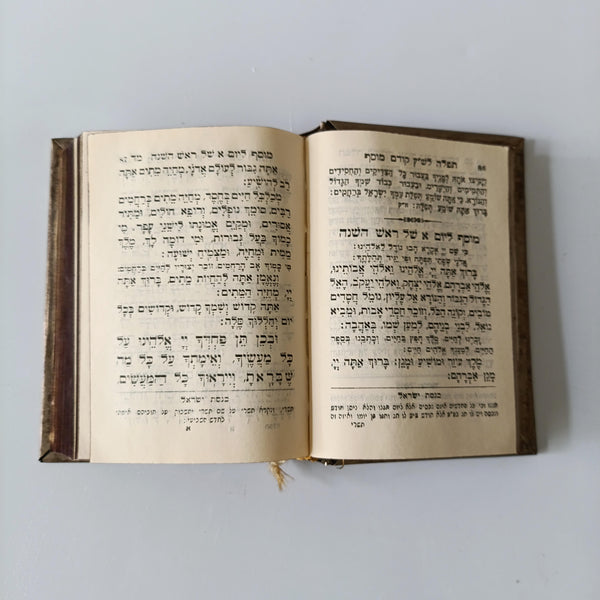 תפלה לש״ץ קודם מוסף
מוסף ליום א של ראש השנה
כי שם יי אקרא הבו גודל לאלהינו:
אדני שפתי תפתח ופי יגיד תהלתך:
ברוך אתה יי, אלהינו ואלהי אבותינו,
אלהי אברהם אלהי יצחק, ואלהי יעקב, האל
הגדול הגבור והנורא אל עליון, גומל חסדים
טובים, וקונה הכל, וזוכר חסדי אבות, ומביא
גואל, לבני בניהם, למען שמו, באהבה:
זכרנו לחיים, מלך חפץ בחיים, וכתבנו בספר
החיים, למענך אלהים חיים:
מלך עוזר ומושיע ומגן, ברוך אתה יי,
מגן אברהם:
כנסת ישראל
מוסף ליום א של ראש השנה
אתה גבור לעולם אדני, מחיה מתים אתה
רב להושיע:
מכלכל חיים בחסד, מחיה מתים ברחמים
רבים, סומך נופלים, ורופא חולים, ומתיר
אסורים, ומקים אמונתו לישני עפר, מי
כמוך בעל גבורות, ומי דומה לך, מלך
ממית ומחיה, ומצמיח ישועה:
מי כמוך אב הרחמים, זוכר יצוריו לחיים ברחמים:
ונאמן אתה להחיות מתים, ברוך אתה
יי, מחיה המתים:
אתה קדוש ושמך קדוש, וקדושים בכל
יום יהללוך סלה:
ובכן תן פחדך יי אלהינו על
כל מעשיך, ואימתך על כל מה
שבראת, וייראוך כל המעשים,
כנסת ישראל